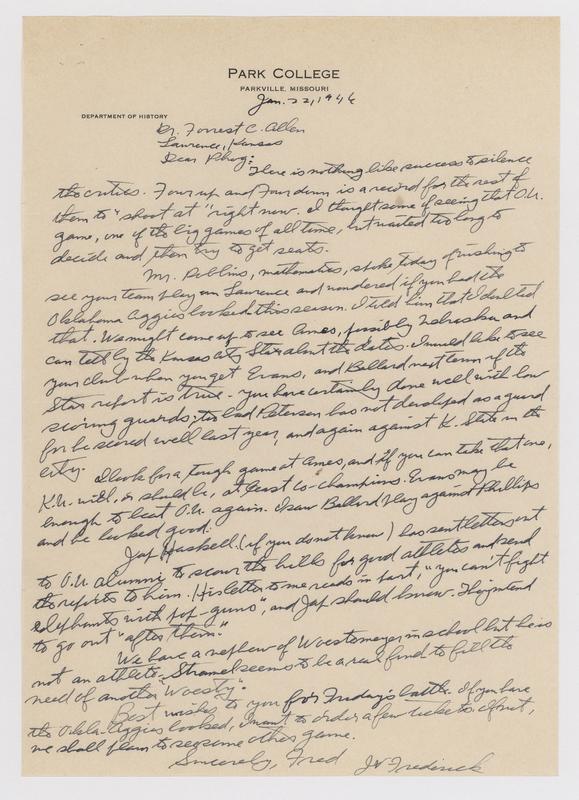 PARK COLLEGE
PARKVILLE, MISSOURI
Jan. 22, 1946
DEPARTMENT OF HISTORY
Dr. Forrest C. Allen
Lawrence, Kansas
Dear Phog:
There is nothing like success to silence
the critics. Four up and Four down is a record for the rest of
them to "shoot at" right now. I thought some of seeing that O.U.
game, one of the big games of all time, but waited too long to
decide and then try to get seats.
Mr. Robbins, mathematics, spoke today of wishing to
see your team play in Lawrence and wondered if you had the
Oklahoma Aggies booked this season. I told him that I doubted
that. We might come up to see Ames, possibly Nebraska and
can tell by the Kansas City Star about the dates. I would like to see
your club when you get Evans, and Ballard next term if the
Star report is true. You have certainly done well with low
scoring guards; too bad Peterson has not developed as a guard
for he scored well last year, and again against K. State in the
city.
I look for a tough game at Ames, and if you can take that one,
K.U. will, or should be, at least co-champions. Evans may be
enough to beat O.U. again. I saw Ballard play against Phillips
and he looked good.
Jap Haskell (if you do not know) has sent letters out
to O.U. alumni to scour the hills for good athletes and send
the reports to him. His letter to me reads in part, "you can't fight
elephants with pop-guns", and Jap should know. They intend
to go out "after them."
We have a nephew of Woestemeyer in school but he is
not an athlete. Stramel seems to be a real find to fill the
need of another "Woesty".
Best wishes to you for Friday's battle. If you have
the Okla. Aggies booked, I want to order a few tickets. If not,
we shall plan to see some other game.
Sincerely, Fred J V Frederick